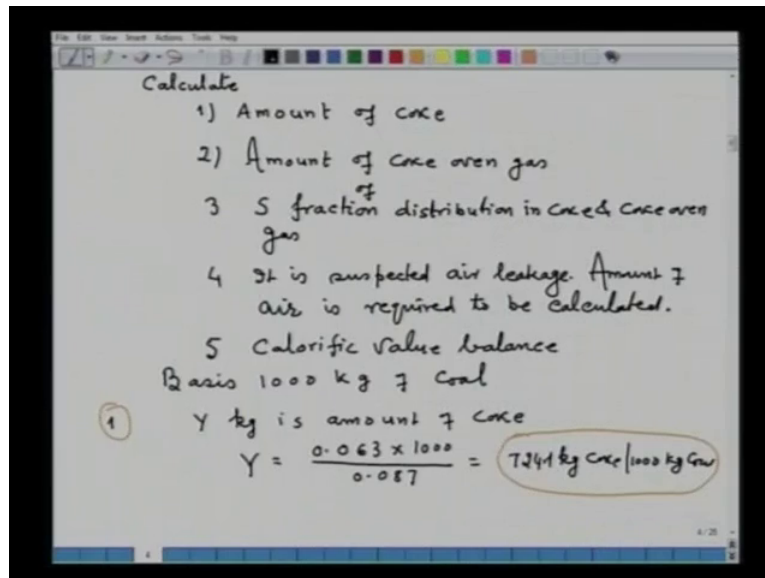 File Edit View Insert Actions Tools Help
Calculate
1) Amount of coke
2) Amount of coke oven gas
of
3 S fraction distribution in coke & coke oven
gas
4 It is suspected air leakage. Amount of
air is required to be calculated.
5 Calorific value balance
Basis 1000 kg of coal
1 Y kg is amount of coke
Y = 0.063 x 1000 / 0.087 = 724.1 kg coke/1000 kg coal
4/25
4